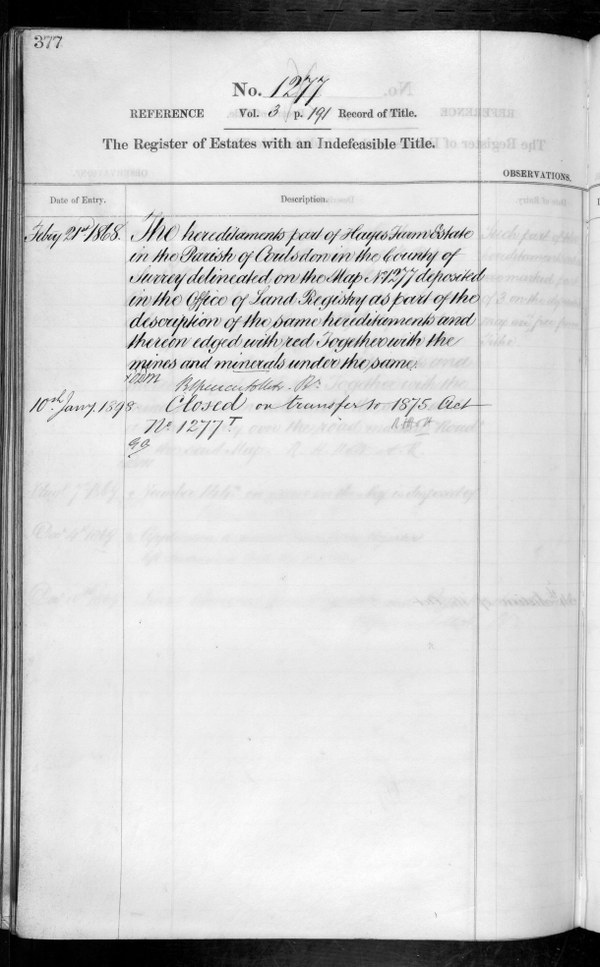 377
No. 1277
REFERENCE Vol. 3 p. 191 Record of Title.
The Register of Estates with an Indefeasible Title.
OBSERVATIONS.
Date of Entry. Description.
Febry 21st 1868. The hereditaments part of Hayes Farm Estate
in the Parish of Coulsdon in the County of
Surrey delineated on the Map No 1277 deposited
in the Office of Land Registry as part of the
description of the same hereditaments and
thereon edged with red Together with the
mines and minerals under the same.
10th Jany. 1898 Closed on transfer to 1875 Act
No. 1277 T